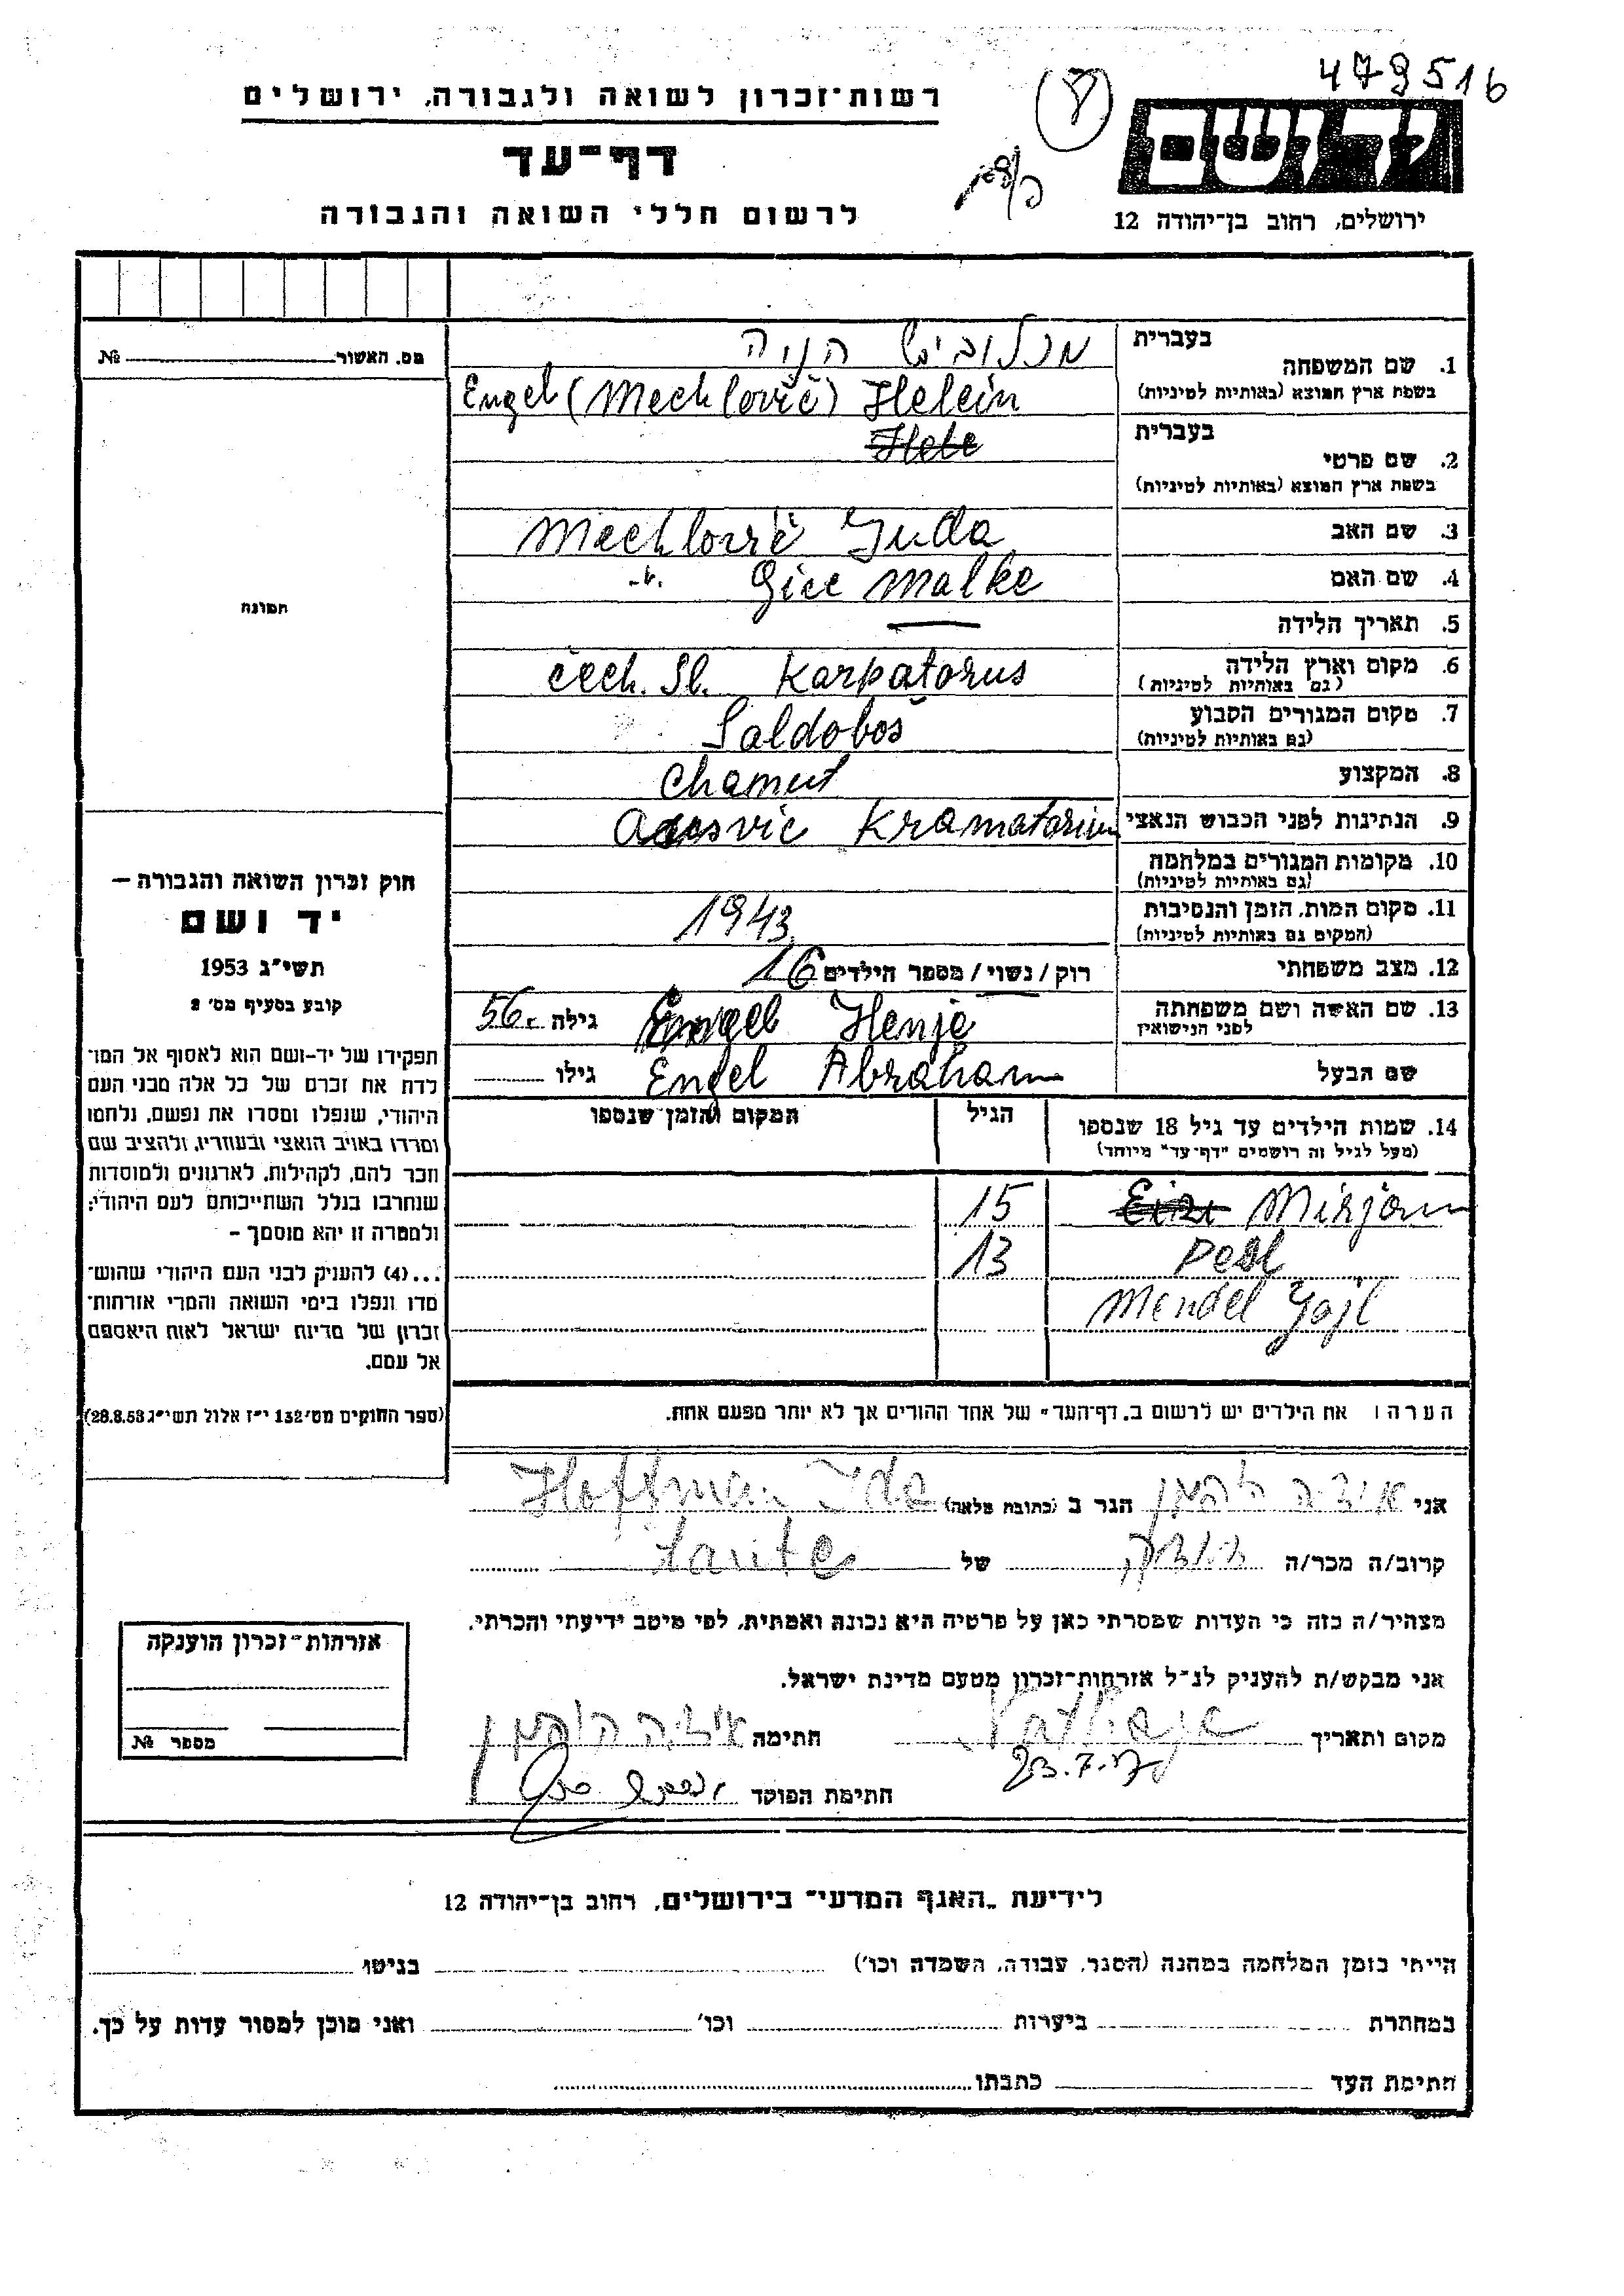 479516
רשות־זכרון לשואה ולגבורה, ירושלים
דף־עד
לרשום חללי השואה והגבורה
יד ושם
ירושלים, רחוב בן־יהודה 12
מס. האשור № 
תמונה
בעברית
מכלוביץ הניה
1. שם המשפחה
בשפת ארץ המוצא (באותיות לטיניות)
Engel (Mechlovič) Helein
בעברית
2. שם פרטי
בשפת ארץ המוצא (באותיות לטיניות)
3. שם האב Mechlovič Juda
4. שם האם Gice Malke
5. תאריך הלידה
6. מקום וארץ הלידה čech. Sl. Karpatorus
(גם באותיות לטיניות)
7. מקום המגורים הקבוע Saldoboš
(גם באותיות לטיניות)
8. המקצוע
9. הנתינות לפני הכבוש הנאצי Kramatorium
10. מקומות המגורים במלחמה
(גם באותיות לטיניות)
11. מקום המות, הזמן והנסיבות 1943
(המקום גם באותיות לטיניות)
12. מצב משפחתי רוק / נשוי / מספר הילדים 16
13. שם האשה ושם משפחתה Engel Henje גילה 56.
לפני הנישואין
שם הבעל Engel Abraham גילו
14. שמות הילדים עד גיל 18 שנספו הגיל המקום והזמן שנספו
(מעל לגיל זה רושמים "דף־עד" מיוחד)
Mirjam 15
Perl 13
Mendel
הערה: את הילדים יש לרשום ב„דף־העד" של אחד ההורים אך לא יותר מפעם אחת.
חוק זכרון השואה והגבורה —
יד ושם
תשי"ג 1953
קובע בסעיף מס' 2
תפקידו של יד-ושם הוא לאסוף אל המו־
לדת את זכרם של כל אלה מבני העם
היהודי, שנפלו ומסרו את נפשם, נלחמו
ומרדו באויב הנאצי ובעוזריו, ולהציב שם
וזכר להם, לקהילות, לארגונים ולמוסדות
שנחרבו בגלל השתייכותם לעם היהודי;
ולמטרה זו יהא מוסמך –
...(4) להעניק לבני העם היהודי שהוש־
מדו ונפלו בימי השואה והמרי אזרחות־
זכרון של מדינת ישראל לאות היאספם
אל עמם.
(ספר החוקים מס' 132 י"ז אלול תשי"ג 28.8.53)
אני אידה הופמן הגר ב (כתובת מלאה) Hoffman Ida
קרוב/ה מכר/ה של
מצהיר/ה בזה כי העדות שמסרתי כאן על פרטיה היא נכונה ואמתית, לפי מיטב ידיעתי והכרתי.
אני מבקש/ת להעניק לנ"ל אזרחות־זכרון מטעם מדינת ישראל.
מקום ותאריך חתימה אידה הופמן
חתימת הפוקד
אזרחות־זכרון הוענקה
מספר №
לידיעת „האגף המדעי" בירושלים, רחוב בן־יהודה 12
הייתי בזמן המלחמה במחנה (הסגר, עבודה, השמדה וכו') בגיטו
במחתרת ביערות וכו' ואני מוכן למסור עדות על כך.
חתימת העד כתבתו